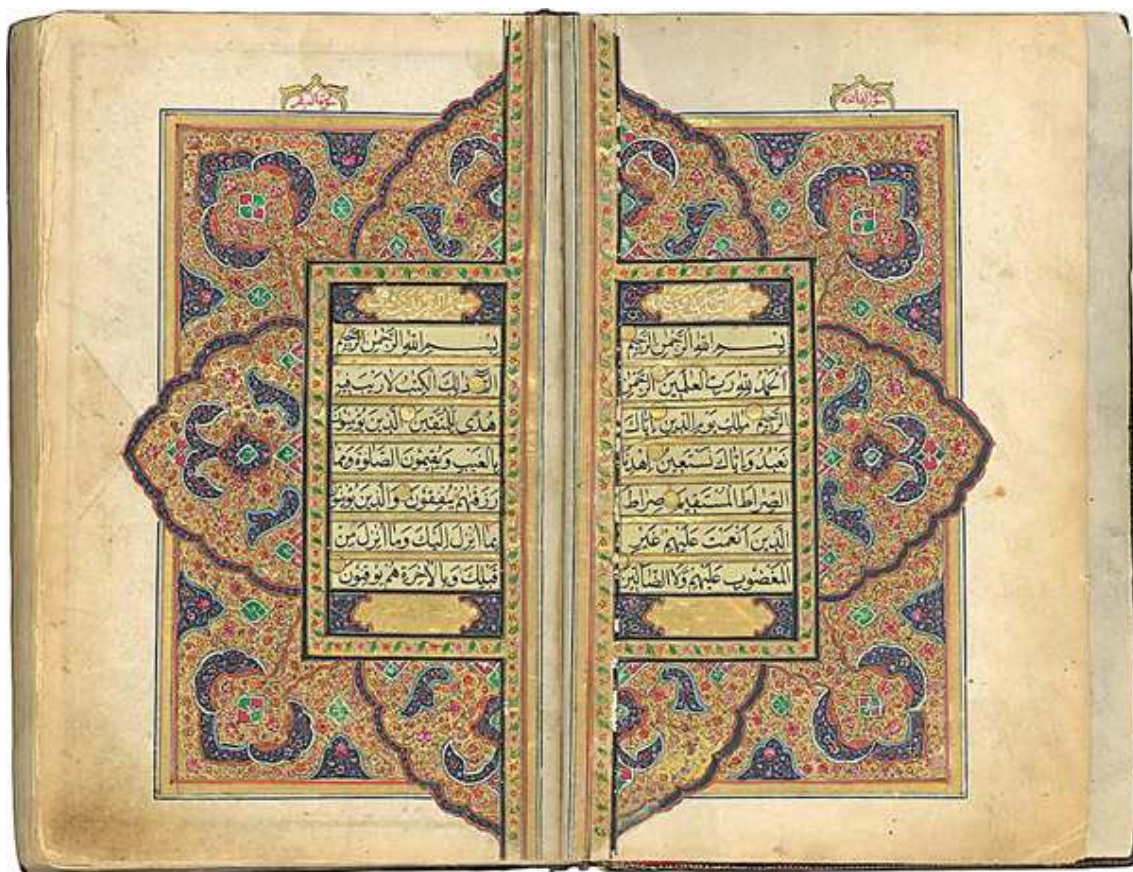 سورة الفاتحه
بِسْمِ اللهِ الرَّحْمٰنِ الرَّحِيْمِ
اَلْحَمْدُ لِلّٰهِ رَبِّ الْعٰلَمِيْنَ الرَّحْمٰنِ
الرَّحِيْمِ مٰلِكِ يَوْمِ الدِّيْنِ اِيَّاكَ
نَعْبُدُ وَاِيَّاكَ نَسْتَعِيْنُ اِهْدِنَا
الصِّرَاطَ الْمُسْتَقِيْمَ صِرَاطَ
الَّذِيْنَ اَنْعَمْتَ عَلَيْهِمْ غَيْرِ
الْمَغْضُوْبِ عَلَيْهِمْ وَلَا الضَّالِّيْنَ
سورة البقره
بِسْمِ اللهِ الرَّحْمٰنِ الرَّحِيْمِ
الٓمّٓ ذٰلِكَ الْكِتٰبُ لَا رَيْبَ فِيْهِ
هُدًى لِلْمُتَّقِيْنَ الَّذِيْنَ يُؤْمِنُوْنَ
بِالْغَيْبِ وَيُقِيْمُوْنَ الصَّلٰوةَ وَمِمَّا
رَزَقْنٰهُمْ يُنْفِقُوْنَ وَالَّذِيْنَ يُؤْمِنُوْنَ
بِمَا اُنْزِلَ اِلَيْكَ وَمَا اُنْزِلَ مِنْ
قَبْلِكَ وَبِالْاٰخِرَةِ هُمْ يُوْقِنُوْنَ